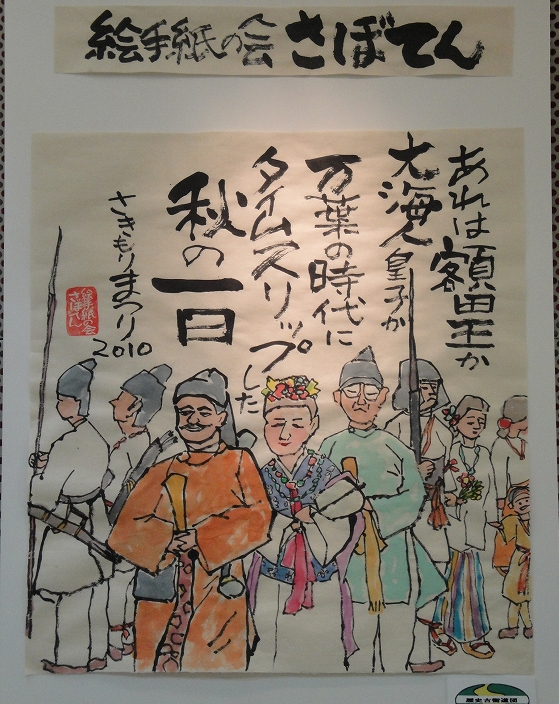 絵手紙の会 さぼてん
あれは額田王か
大海人皇子か
万葉の時代に
タイムスリップした
秋の一日
さきもりまつり
2010
絵手紙の会
さぼてん
歴史古街道団